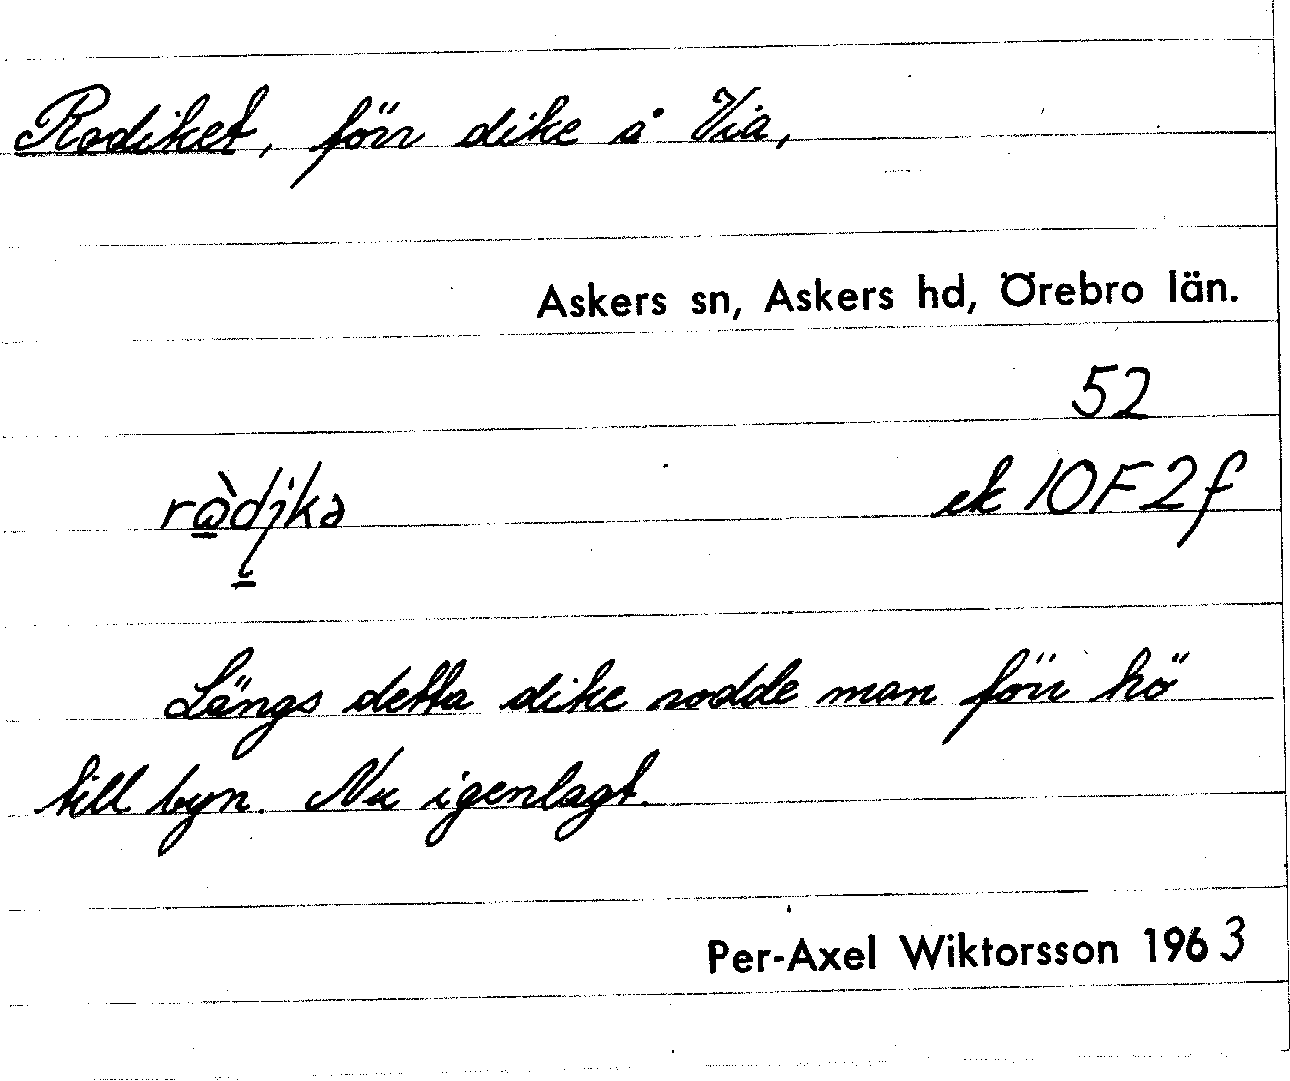 Rodiket, förr dike å Via,
Askers sn, Askers hd, Örebro län.
52
ek 10F2f
Längs detta dike rodde man förr hö
till byn. Nu igenlagt.
Per-Axel Wiktorsson 1963